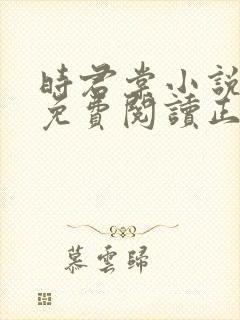 時君棠小說
免費閱讀正
慕雲歸